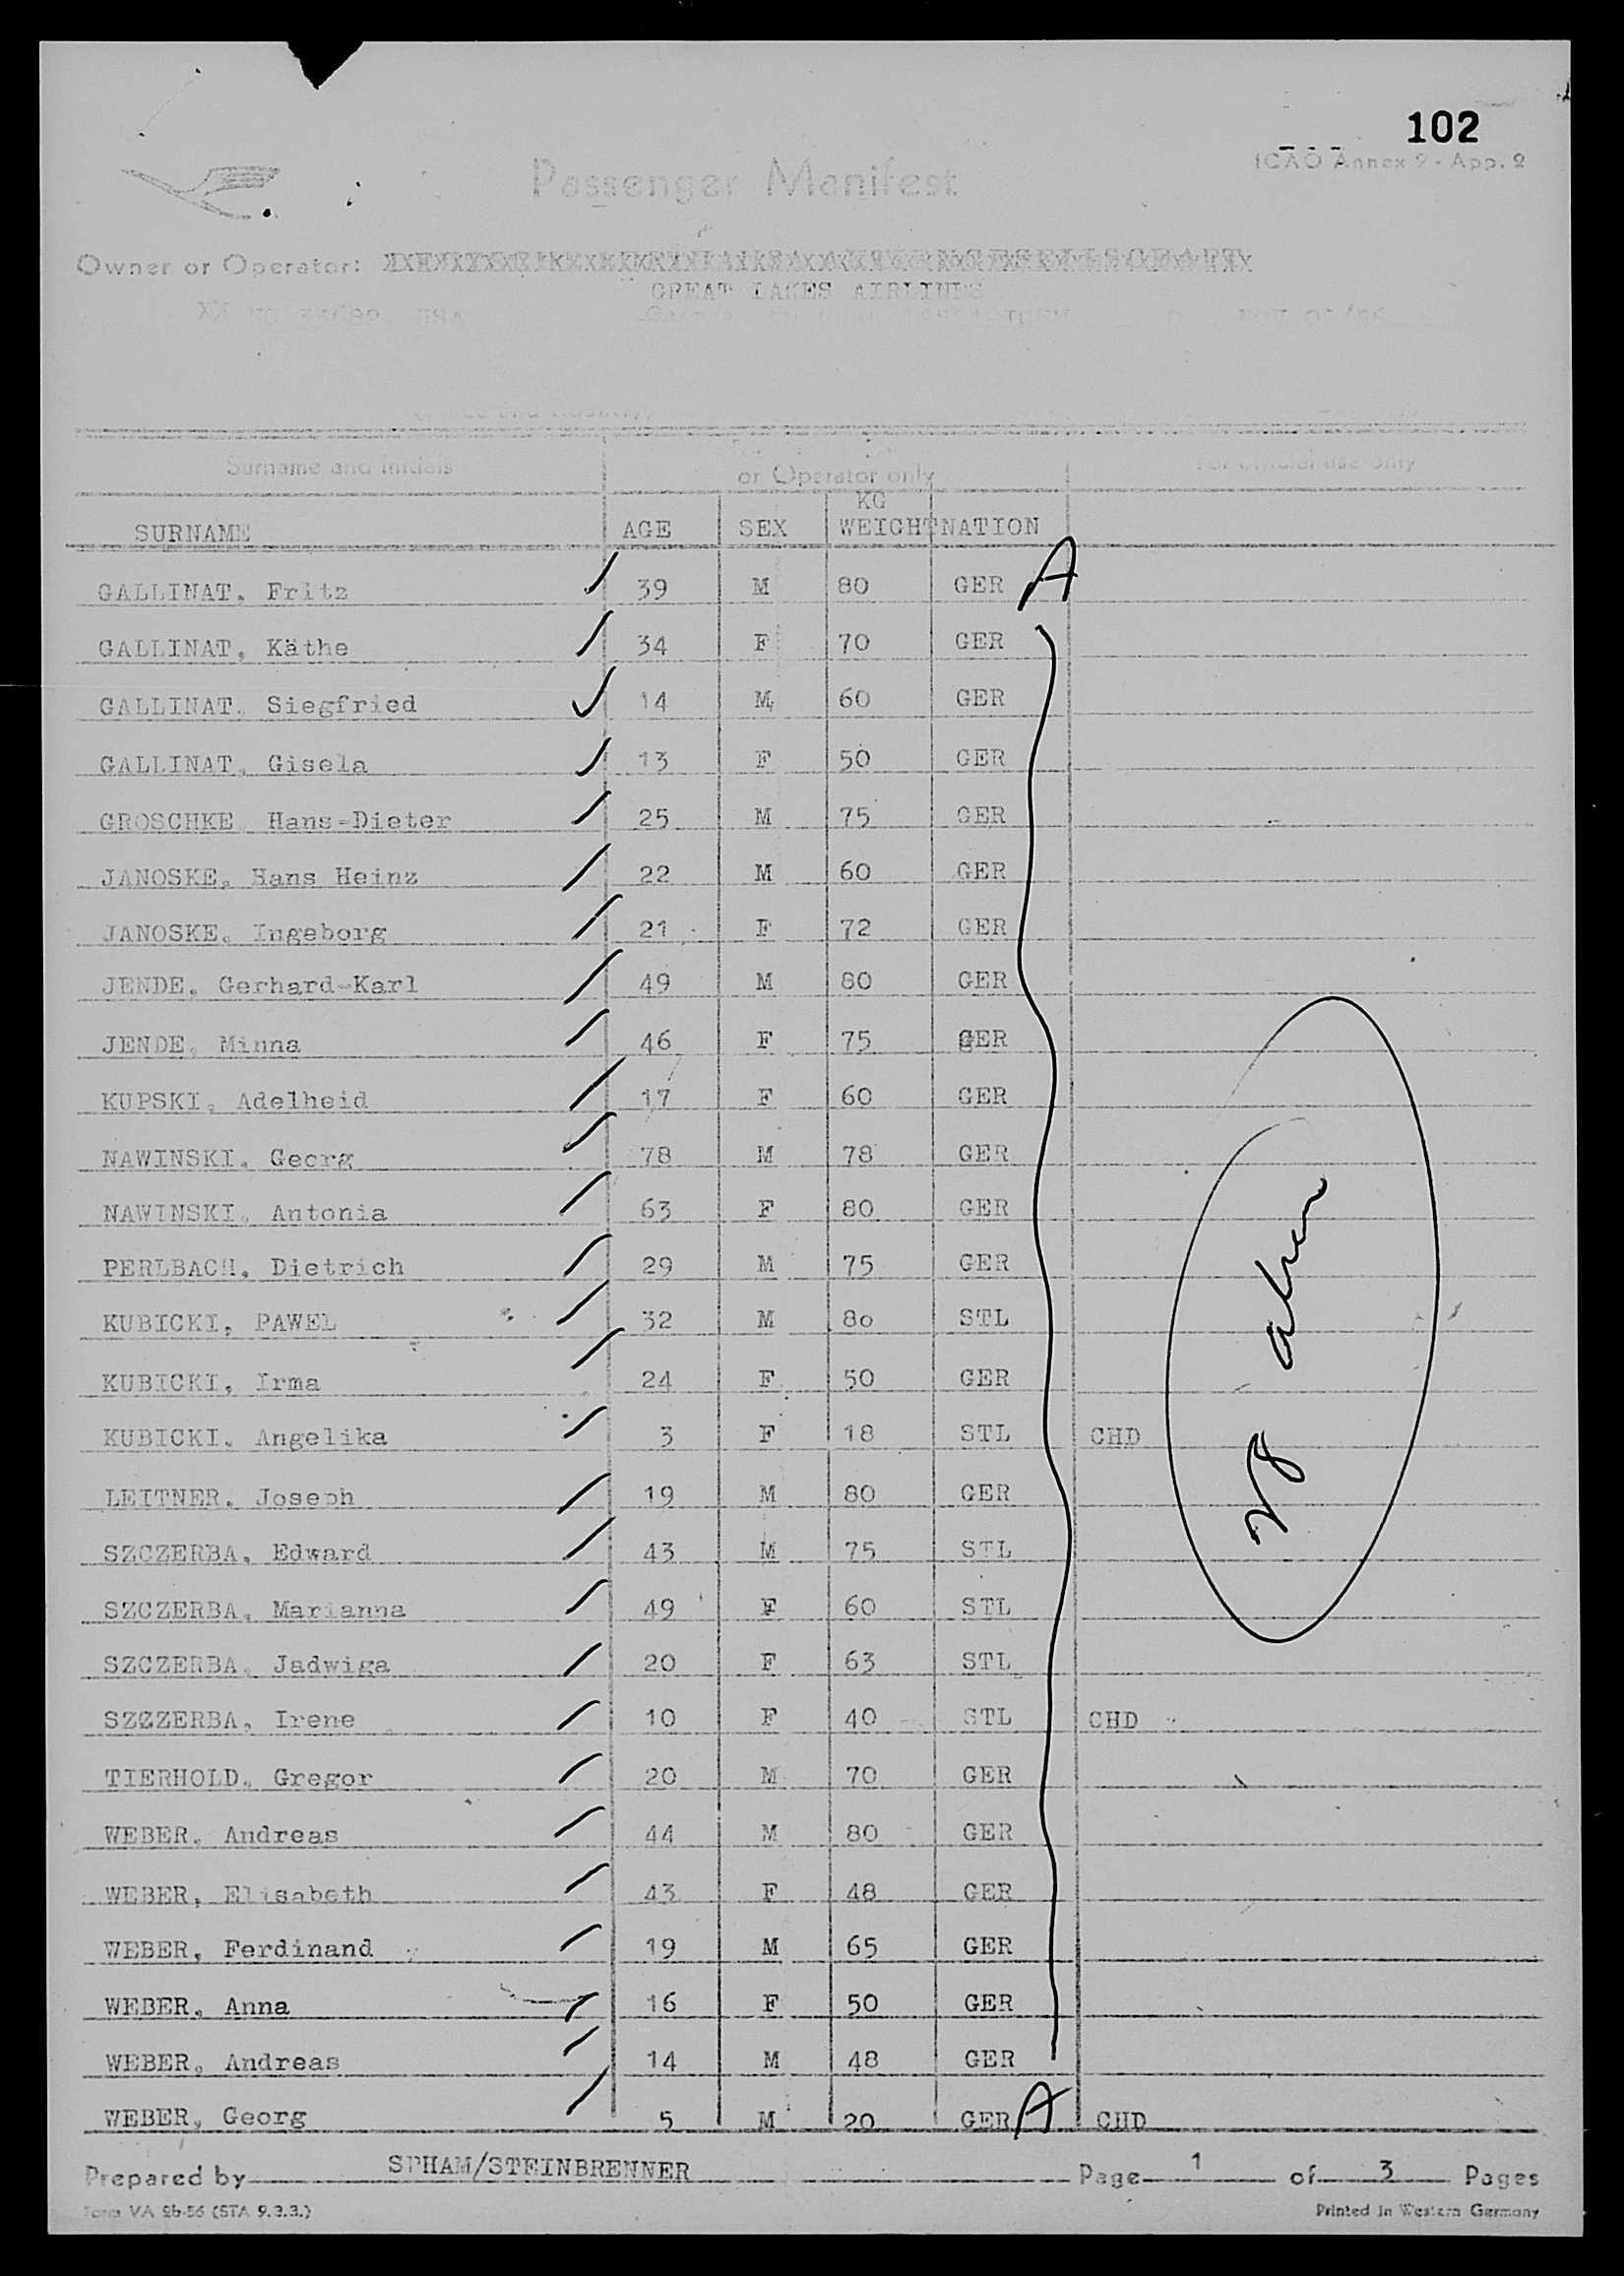 102
ICAO Annex 9 - App. 2
Passenger Manifest
Owner or Operator:
GREAT LAKES AIRLINES
Surname and initials or Operator only For official use only
KG
SURNAME AGE SEX WEIGHT NATION
GALLINAT, Fritz 39 M 80 GER A
GALLINAT, Käthe 34 F 70 GER
GALLINAT, Siegfried 14 M 60 GER
GALLINAT, Gisela 13 F 50 GER
GROSCHKE, Hans-Dieter 25 M 75 GER
JANOSKE, Hans Heinz 22 M 60 GER
JANOSKE, Ingeborg 21 F 72 GER
JENDE, Gerhard-Karl 49 M 80 GER
JENDE, Minna 46 F 75 GER
KUPSKI, Adelheid 17 F 60 GER
NAWINSKI, Georg 78 M 78 GER
NAWINSKI, Antonia 63 F 80 GER
PERLBACH, Dietrich 29 M 75 GER
KUBICKI, PAWEL 32 M 80 STL
KUBICKI, Irma 24 F 50 GER
KUBICKI, Angelika 3 F 18 STL CHD
LEITNER, Joseph 19 M 80 GER
SZCZERBA, Edward 43 M 75 STL
SZCZERBA, Marianna 49 F 60 STL
SZCZERBA, Jadwiga 20 F 63 STL
SZCZERBA, Irene 10 F 40 STL CHD
TIERHOLD, Gregor 20 M 70 GER
WEBER, Andreas 44 M 80 GER
WEBER, Elisabeth 43 F 48 GER
WEBER, Ferdinand 19 M 65 GER
WEBER, Anna 16 F 50 GER
WEBER, Andreas 14 M 48 GER
WEBER, Georg 5 M 20 GER A CHD
28 alien
Prepared by SPHAM/STEINBRENNER Page 1 of 3 Pages
Form VA 2b-56 (STA 9.3.3.) Printed in Western Germany